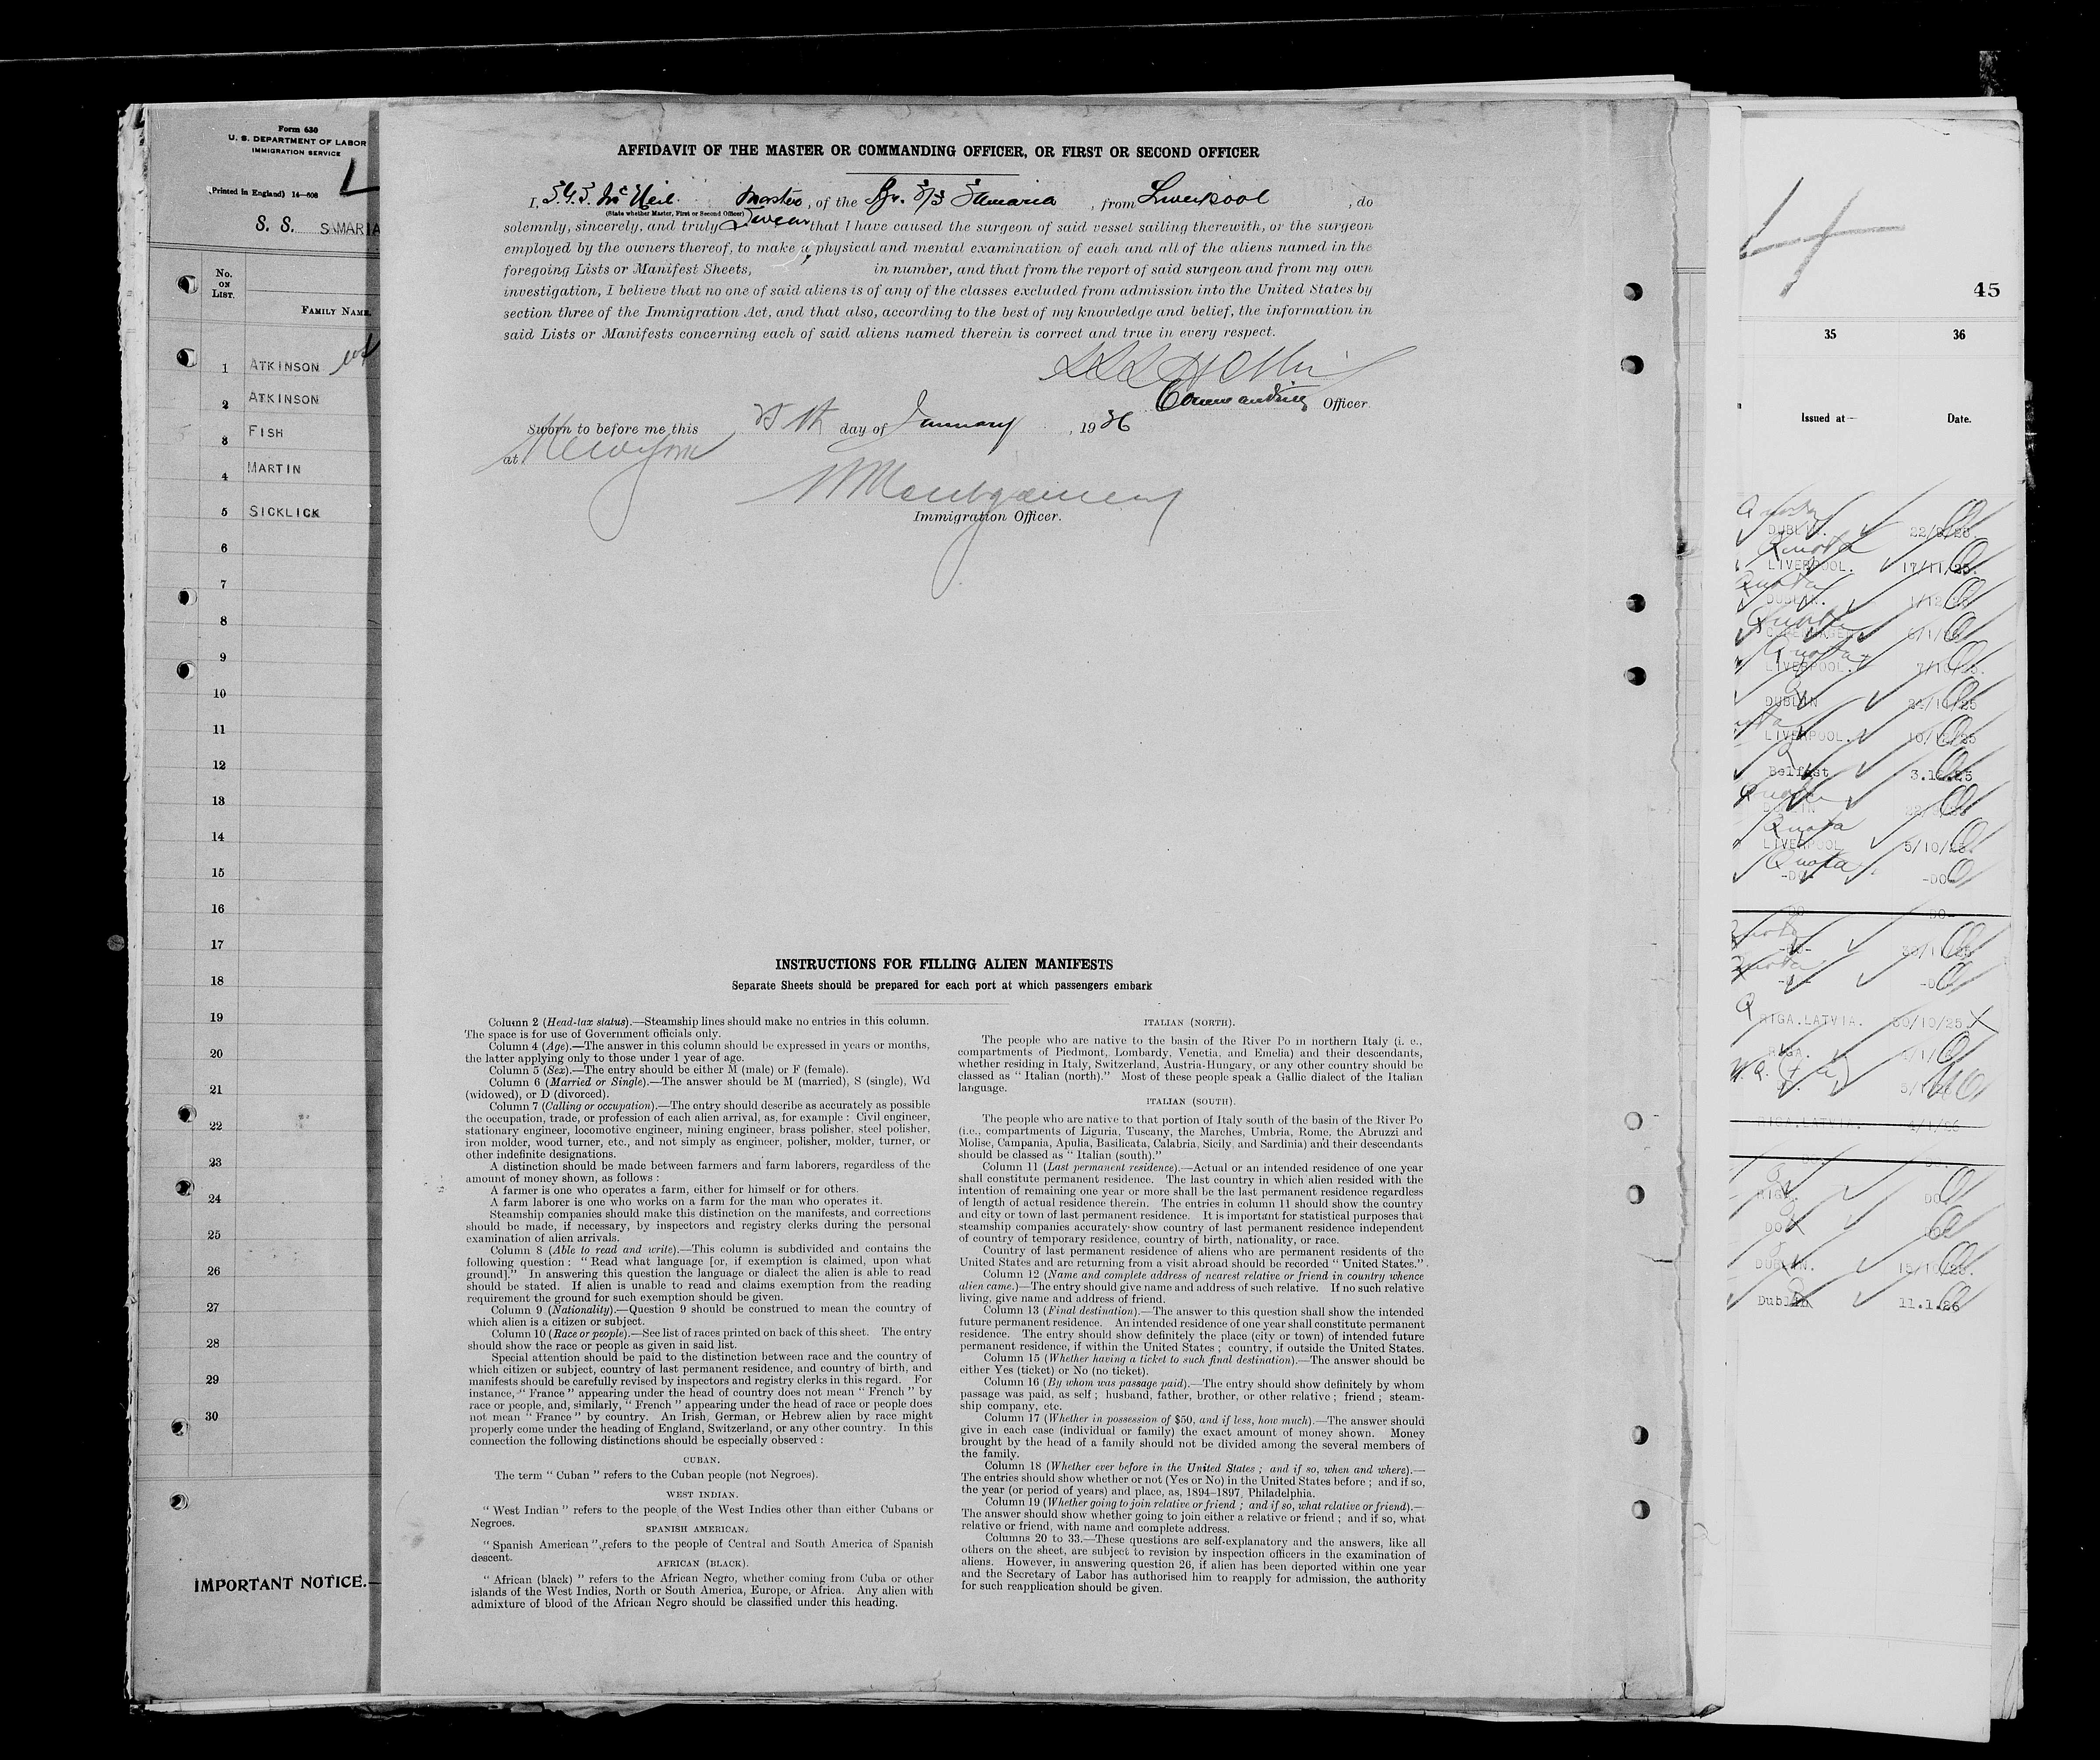 Form 630
U. S. DEPARTMENT OF LABOR
IMMIGRATION SERVICE
(Printed in England) 14—608
S. S. SAMARIA
No. ON LIST.
FAMILY NAME
1 ATKINSON
2 ATKINSON
3 FISH
4 MARTIN
5 SICKLICK
6
7
8
9
10
11
12
13
14
15
16
17
18
19
20
21
22
23
24
25
26
27
28
29
30
IMPORTANT NOTICE.—
AFFIDAVIT OF THE MASTER OR COMMANDING OFFICER, OR FIRST OR SECOND OFFICER
I, McNeil Master, of the Br. S/S Samaria, from Liverpool, do
(State whether Master, First or Second Officer)
solemnly, sincerely, and truly Swear that I have caused the surgeon of said vessel sailing therewith, or the surgeon
employed by the owners thereof, to make a physical and mental examination of each and all of the aliens named in the
foregoing Lists or Manifest Sheets, in number, and that from the report of said surgeon and from my own
investigation, I believe that no one of said aliens is of any of the classes excluded from admission into the United States by
section three of the Immigration Act, and that also, according to the best of my knowledge and belief, the information in
said Lists or Manifests concerning each of said aliens named therein is correct and true in every respect.
Commanding Officer.
Sworn to before me this day of January, 1926
at New York
Montgomery
Immigration Officer.
INSTRUCTIONS FOR FILLING ALIEN MANIFESTS
Separate Sheets should be prepared for each port at which passengers embark
Column 2 (Head-tax status).—Steamship lines should make no entries in this column.
The space is for use of Government officials only.
Column 4 (Age).—The answer in this column should be expressed in years or months,
the latter applying only to those under 1 year of age.
Column 5 (Sex).—The entry should be either M (male) or F (female).
Column 6 (Married or Single).—The answer should be M (married), S (single), Wd
(widowed), or D (divorced).
Column 7 (Calling or occupation).—The entry should describe as accurately as possible
the occupation, trade, or profession of each alien arrival, as, for example : Civil engineer,
stationary engineer, locomotive engineer, mining engineer, brass polisher, steel polisher,
iron molder, wood turner, etc., and not simply as engineer, polisher, molder, turner, or
other indefinite designations.
A distinction should be made between farmers and farm laborers, regardless of the
amount of money shown, as follows :
A farmer is one who operates a farm, either for himself or for others.
A farm laborer is one who works on a farm for the man who operates it.
Steamship companies should make this distinction on the manifests, and corrections
should be made, if necessary, by inspectors and registry clerks during the personal
examination of alien arrivals.
Column 8 (Able to read and write).—This column is subdivided and contains the
following question : " Read what language [or, if exemption is claimed, upon what
ground]." In answering this question the language or dialect the alien is able to read
should be stated. If alien is unable to read and claims exemption from the reading
requirement the ground for such exemption should be given.
Column 9 (Nationality).—Question 9 should be construed to mean the country of
which alien is a citizen or subject.
Column 10 (Race or people).—See list of races printed on back of this sheet. The entry
should show the race or people as given in said list.
Special attention should be paid to the distinction between race and the country of
which citizen or subject, country of last permanent residence, and country of birth, and
manifests should be carefully revised by inspectors and registry clerks in this regard. For
instance, " France " appearing under the head of country does not mean " French " by
race or people, and, similarly, " French " appearing under the head of race or people does
not mean " France " by country. An Irish, German, or Hebrew alien by race might
properly come under the heading of England, Switzerland, or any other country. In this
connection the following distinctions should be especially observed :
CUBAN.
The term " Cuban " refers to the Cuban people (not Negroes).
WEST INDIAN.
" West Indian " refers to the people of the West Indies other than either Cubans or
Negroes.
SPANISH AMERICAN.
" Spanish American " refers to the people of Central and South America of Spanish
descent.
AFRICAN (BLACK).
" African (black) " refers to the African Negro, whether coming from Cuba or other
islands of the West Indies, North or South America, Europe, or Africa. Any alien with
admixture of blood of the African Negro should be classified under this heading.
ITALIAN (NORTH).
The people who are native to the basin of the River Po in northern Italy (i. e.,
compartments of Piedmont, Lombardy, Venetia, and Emelia) and their descendants,
whether residing in Italy, Switzerland, Austria-Hungary, or any other country should be
classed as " Italian (north)." Most of these people speak a Gallic dialect of the Italian
language.
ITALIAN (SOUTH).
The people who are native to that portion of Italy south of the basin of the River Po
(i.e., compartments of Liguria, Tuscany, the Marches, Umbria, Rome, the Abruzzi and
Molise, Campania, Apulia, Basilicata, Calabria, Sicily, and Sardinia) and their descendants
should be classed as " Italian (south)."
Column 11 (Last permanent residence).—Actual or an intended residence of one year
shall constitute permanent residence. The last country in which alien resided with the
intention of remaining one year or more shall be the last permanent residence regardless
of length of actual residence therein. The entries in column 11 should show the country
and city or town of last permanent residence. It is important for statistical purposes that
steamship companies accurately show country of last permanent residence independent
of country of temporary residence, country of birth, nationality, or race.
Country of last permanent residence of aliens who are permanent residents of the
United States and are returning from a visit abroad should be recorded " United States."
Column 12 (Name and complete address of nearest relative or friend in country whence
alien came.)—The entry should give name and address of such relative. If no such relative
living, give name and address of friend.
Column 13 (Final destination).—The answer to this question shall show the intended
future permanent residence. An intended residence of one year shall constitute permanent
residence. The entry should show definitely the place (city or town) of intended future
permanent residence, if within the United States ; country, if outside the United States.
Column 15 (Whether having a ticket to such final destination).—The answer should be
either Yes (ticket) or No (no ticket).
Column 16 (By whom was passage paid).—The entry should show definitely by whom
passage was paid, as self ; husband, father, brother, or other relative ; friend ; steam-
ship company, etc.
Column 17 (Whether in possession of $50, and if less, how much).—The answer should
give in each case (individual or family) the exact amount of money shown. Money
brought by the head of a family should not be divided among the several members of
the family.
Column 18 (Whether ever before in the United States ; and if so, when and where).—
The entries should show whether or not (Yes or No) in the United States before ; and if so,
the year (or period of years) and place, as, 1894–1897, Philadelphia.
Column 19 (Whether going to join relative or friend ; and if so, what relative or friend).—
The answer should show whether going to join either a relative or friend ; and if so, what
relative or friend, with name and complete address.
Columns 20 to 33.—These questions are self-explanatory and the answers, like all
others on the sheet, are subject to revision by inspection officers in the examination of
aliens. However, in answering question 26, if alien has been deported within one year
and the Secretary of Labor has authorised him to reapply for admission, the authority
for such reapplication should be given.
45
35 36
Issued at— Date.
Quota
DUBLIN.
Quota
LIVERPOOL. 17/11/25.
Quota
DUBLIN.
Quota
Quota
LIVERPOOL.
DUBLIN
LIVERPOOL. 10/12/25
Belfast 3.12.25
Quota
Quota
LIVERPOOL 5/10/25.
Quota
-DO- -DO-
-DO- -DO-
Quota
-DO-
Quota
Q
RIGA.LATVIA. 30/10/25.
RIGA.
RIGA.LATVIA. 4/1/26
RIGA. DO
DO DO
DUBLIN. 15/10/25.
Dublin 11.1.26